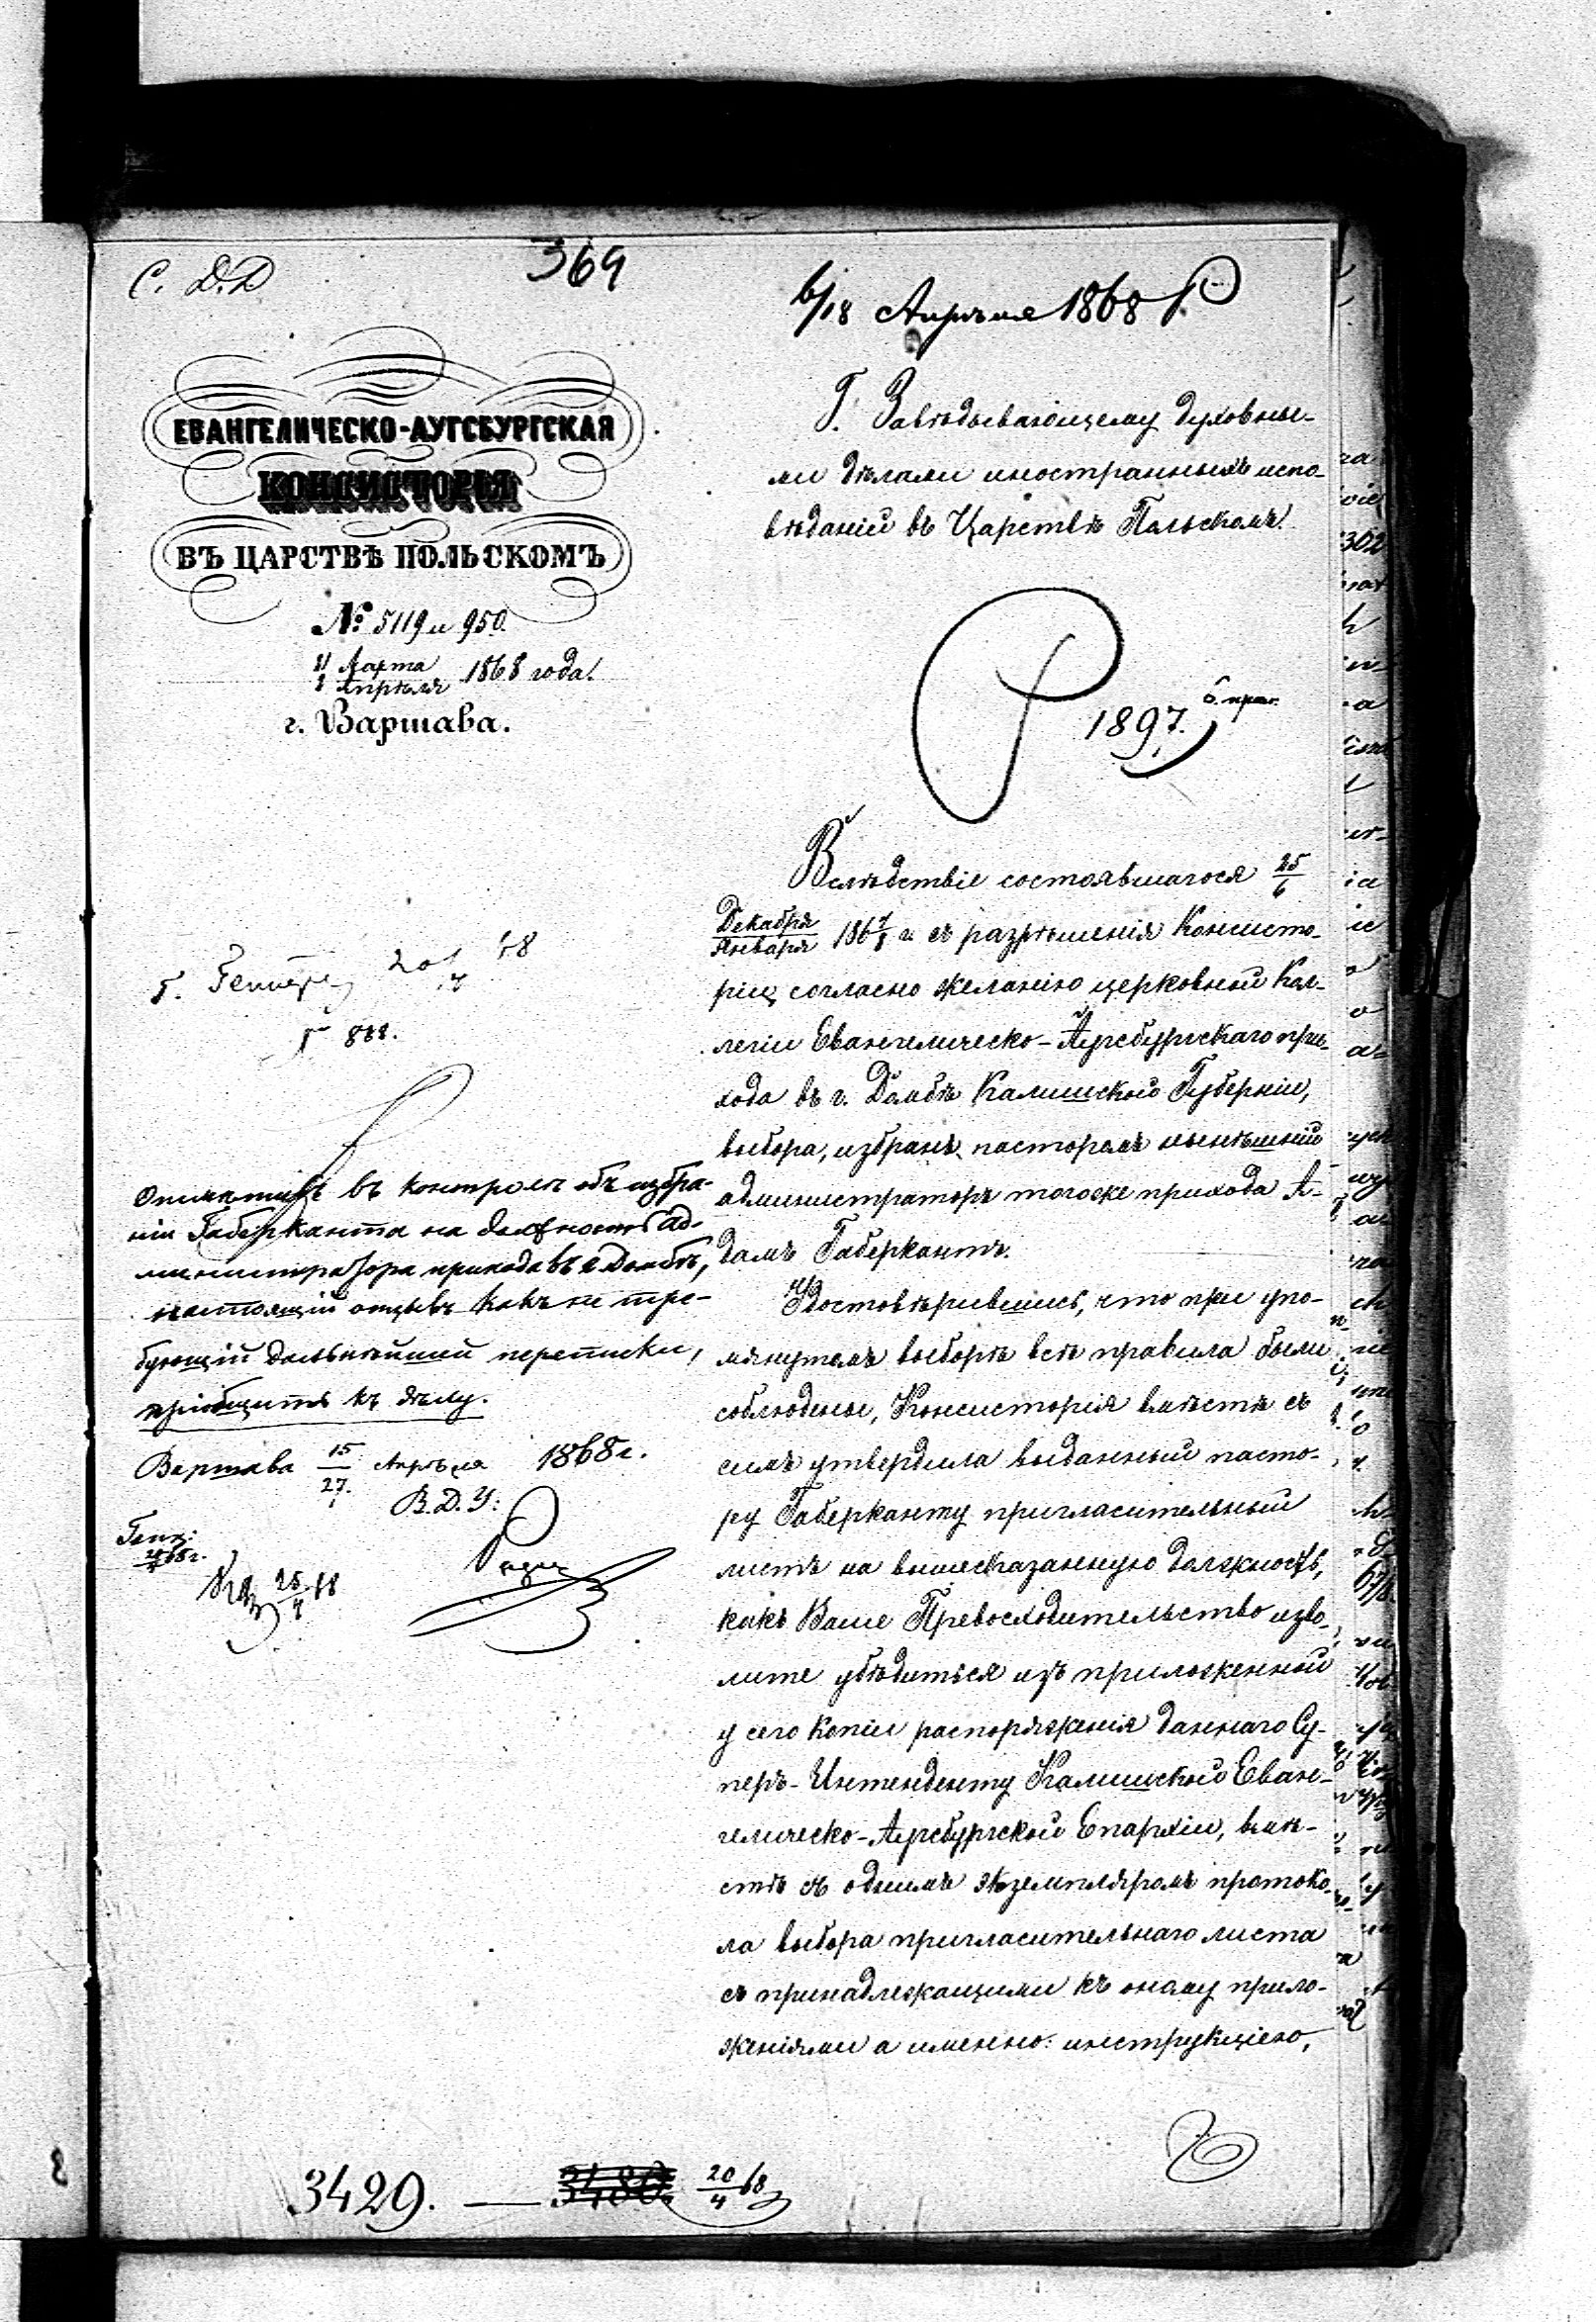 С. Д. Д
369
6/18 Апрѣля 1868 г.
ЕВАНГЕЛИЧЕСКО-АУГСБУРГСКАЯ
КОНСИСТОРІЯ
ВЪ ЦАРСТВѢ ПОЛЬСКОМЪ
№ 5119 и 950.
Марта
Апрѣля 1868 года.
г. Варшава.
Г. Завѣдывающему духовны-
ми дѣлами иностранныхъ испо-
вѣданій въ Царствѣ Польскомъ.
1897.
Вслѣдствіе состоявшагося 25/6
Декабря/Января 1867/8 г. съ разрѣшенія Консисто-
ріи, согласно желанію церковной Кол-
легіи Евангелическо-Аугсбургскаго при-
хода въ г. Домбѣ Калишской Губерніи,
выбора, избранъ пасторомъ нынѣшній
администраторъ тогоже прихода А-
дамъ Габеркантъ.
Удостовѣрившись, что при упо-
мянутомъ выборѣ всѣ правила были
соблюдены, Консисторія вмѣстѣ съ
симъ утвердила выданный пасто-
ру Габерканту пригласительный
листъ на вышесказанную должность,
какъ Ваше Превосходительство изво-
лите убѣдиться изъ приложенной
у сего копіи распоряженія даннаго Су-
перъ-Интенденту Калишской Еван-
гелическо-Аугсбургской Епархіи, вмѣ-
стѣ съ однимъ экземпляромъ протоко-
ла выбора пригласительнаго листа
съ принадлежащими къ оному прило-
женіями а именно: инструкціею,
Отмѣтивъ въ контролѣ объ избра-
ніи Габерканта на должность ад-
министратора прихода въ г. Домбѣ,
настоящій отзывъ какъ не тре-
бующій дальнѣйшей переписки,
пріобщить къ дѣлу.
Варшава 15/27 Апрѣля 1868 г.
В. Д. У:
3429. — 3480. 20/4 68